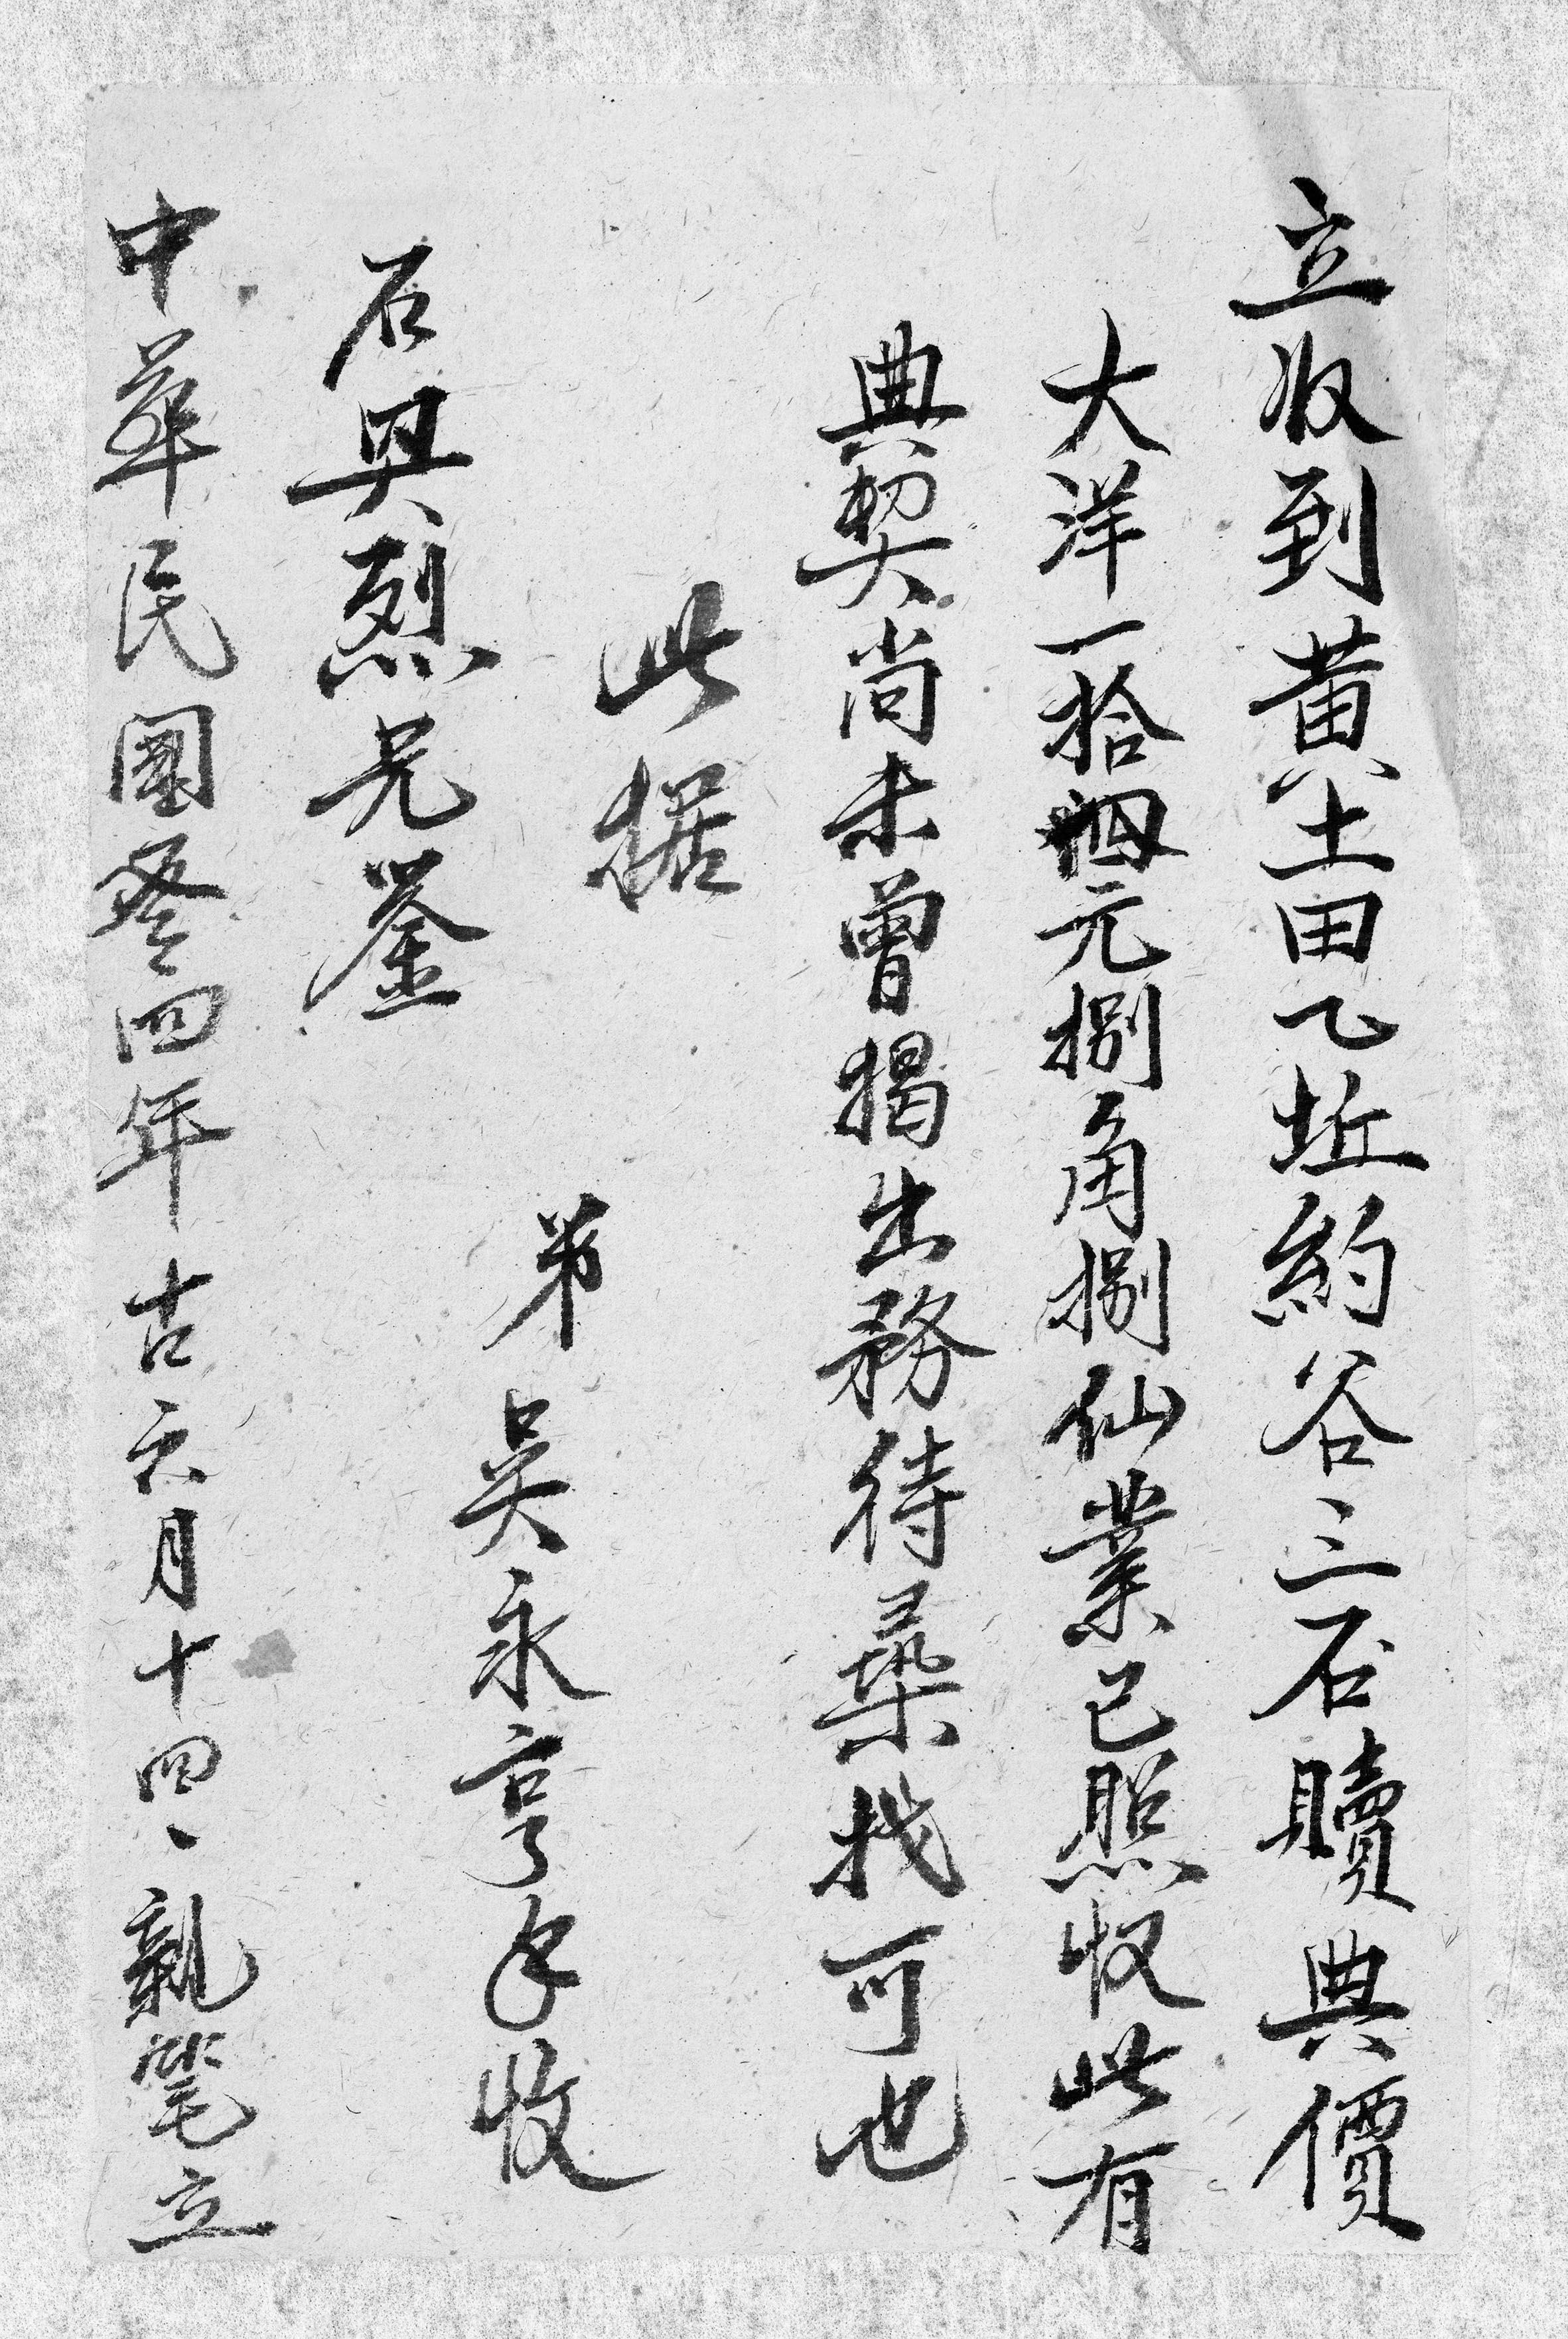 立收到黄土田乙坵約谷三石贖典價
大洋一拾四元捌角捌仙業已照收此有
典契尚未曾揭出務待尋找可也
此据
弟吳永亨手收
石與烈兄鑒
中華民國叄四年古六月十四、親笔立